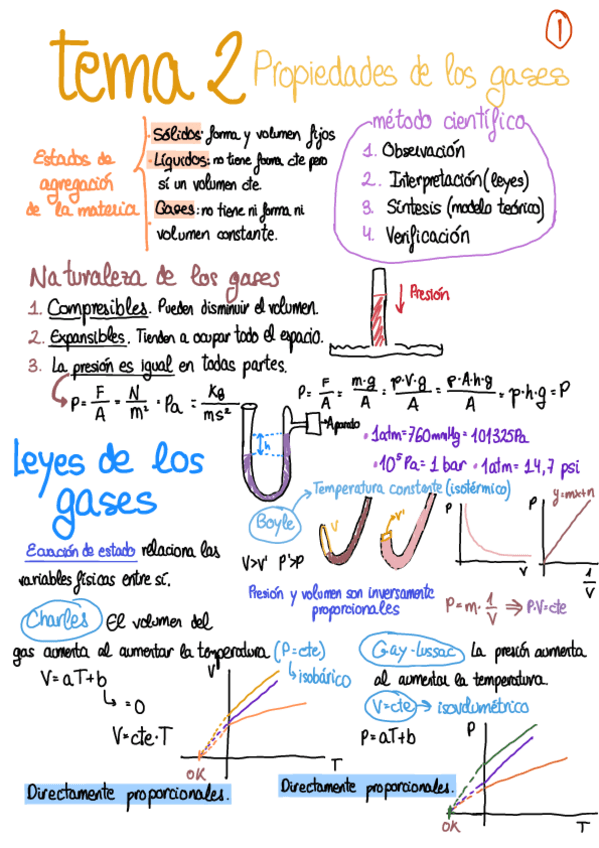 1
tema 2 Propiedades de los gases
Estados de
agregación
de la materia
· Sólidos: forma y volumen fijos
· Líquidos: no tiene forma cte pero
sí un volumen cte.
· Gases: no tiene ni forma ni
volumen constante.
método científico
1. Observación
2. Interpretación (leyes)
3. Síntesis (modelo teórico)
4. Verificación
Naturaleza de los gases
1. Compresibles. Pueden disminuir el volumen.
2. Expansibles. Tienden a ocupar todo el espacio.
3. La presión es igual en todas partes.
Presión
P = F/A = N/m² = Pa = kg/ms²
P = F/A = m·g/A = ρ·V·g/A = ρ·A·h·g/A = ρ·h·g = P
h
Aparato
· 1atm = 760mmHg = 101325Pa
· 10⁵ Pa = 1 bar · 1atm = 14,7 psi
Leyes de los
gases
Ecuación de estado relaciona las
variables físicas entre sí.
Boyle
Temperatura constante (isotérmico)
V
V'
V>V' P'>P
Presión y volumen son inversamente
proporcionales
P
V
P
y=mx+n
1/V
P = m · 1/V ⇒ P·V=cte
Charles El volumen del
gas aumenta al aumentar la temperatura (P=cte)
isobárico
V=aT+b
=0
V=cte·T
V
T
0K
Directamente proporcionales.
Gay-Lussac La presión aumenta
al aumentar la temperatura.
V=cte → isovolumétrico
P=aT+b
P
T
0K
Directamente proporcionales.